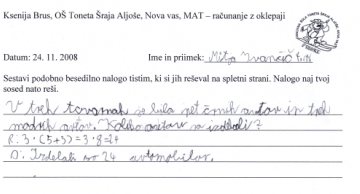 Ksenija Brus, OŠ Toneta Šraja Aljoše, Nova vas, MAT – računanje z oklepaji
Datum: 24. 11. 2008 Ime in priimek: Mitja Ivančič
Sestavi podobno besedilno nalogo tistim, ki si jih reševal na spletni strani. Nalogo naj tvoj
sosed nato reši.
V treh tovarnah so pet črnih avtov in treh
modrih avtov. Koliko so izdelali?
R: 3·(5+3)=3·8=24
O: Izdelali so 24 avtomobilov.